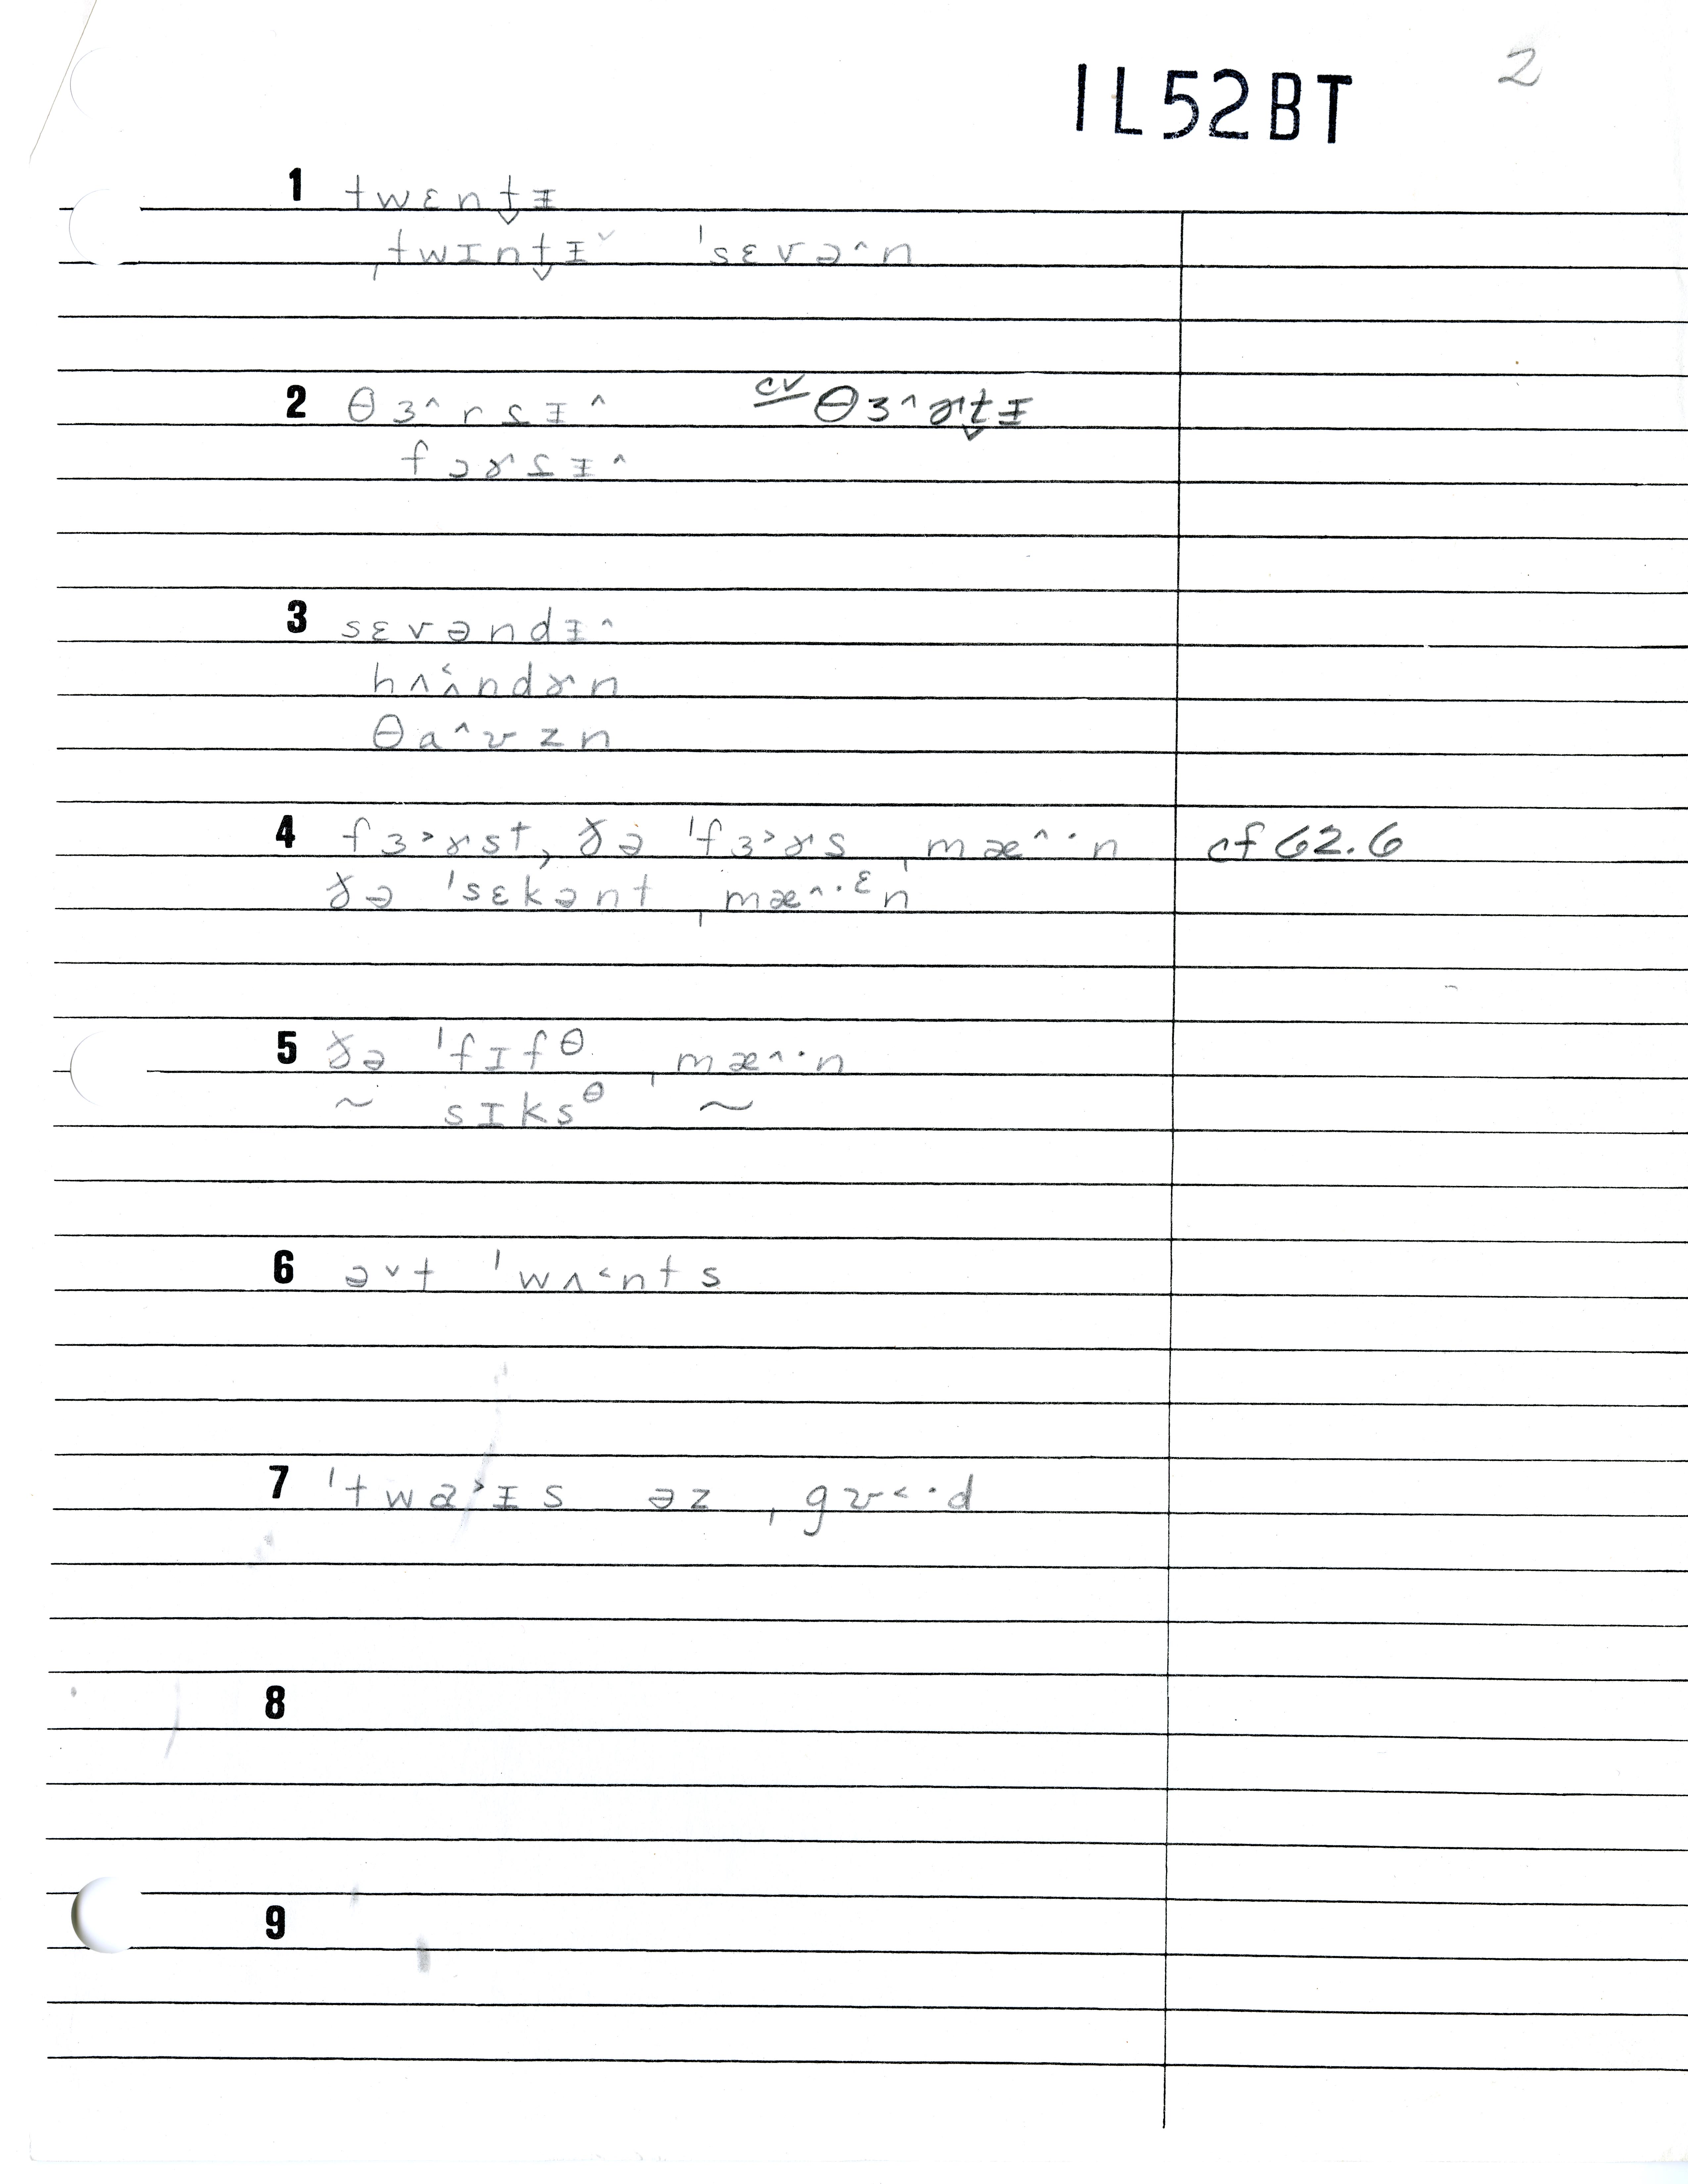 2
IL52BT
1 twɛnt̬ᵻ
ˌtwɪnt̬ᵻ˅ ˈsɛvə^n
2 θɜ^rsᵻ^ cv θɜ^ɚt̬ᵻ
fəɚsᵻ^
3 sɛvəndᵻ^
hʌ˂ʌndɚn
θa^ʊzn
4 fɜ˃ɚst, ðə ˈfɜ˃ɚs ˌmæ^·n cf 62.6
ðə ˈsɛkənt ˌmæ^·ᵋn
5 ðə ˈfɪfᶿ ˌmæ^·n
~ sɪksᶿ ~
6 ə˅t ˈwʌ˂nts
7 ˈtwa˃ɪs əz ˌgʊ˂·d
8
9